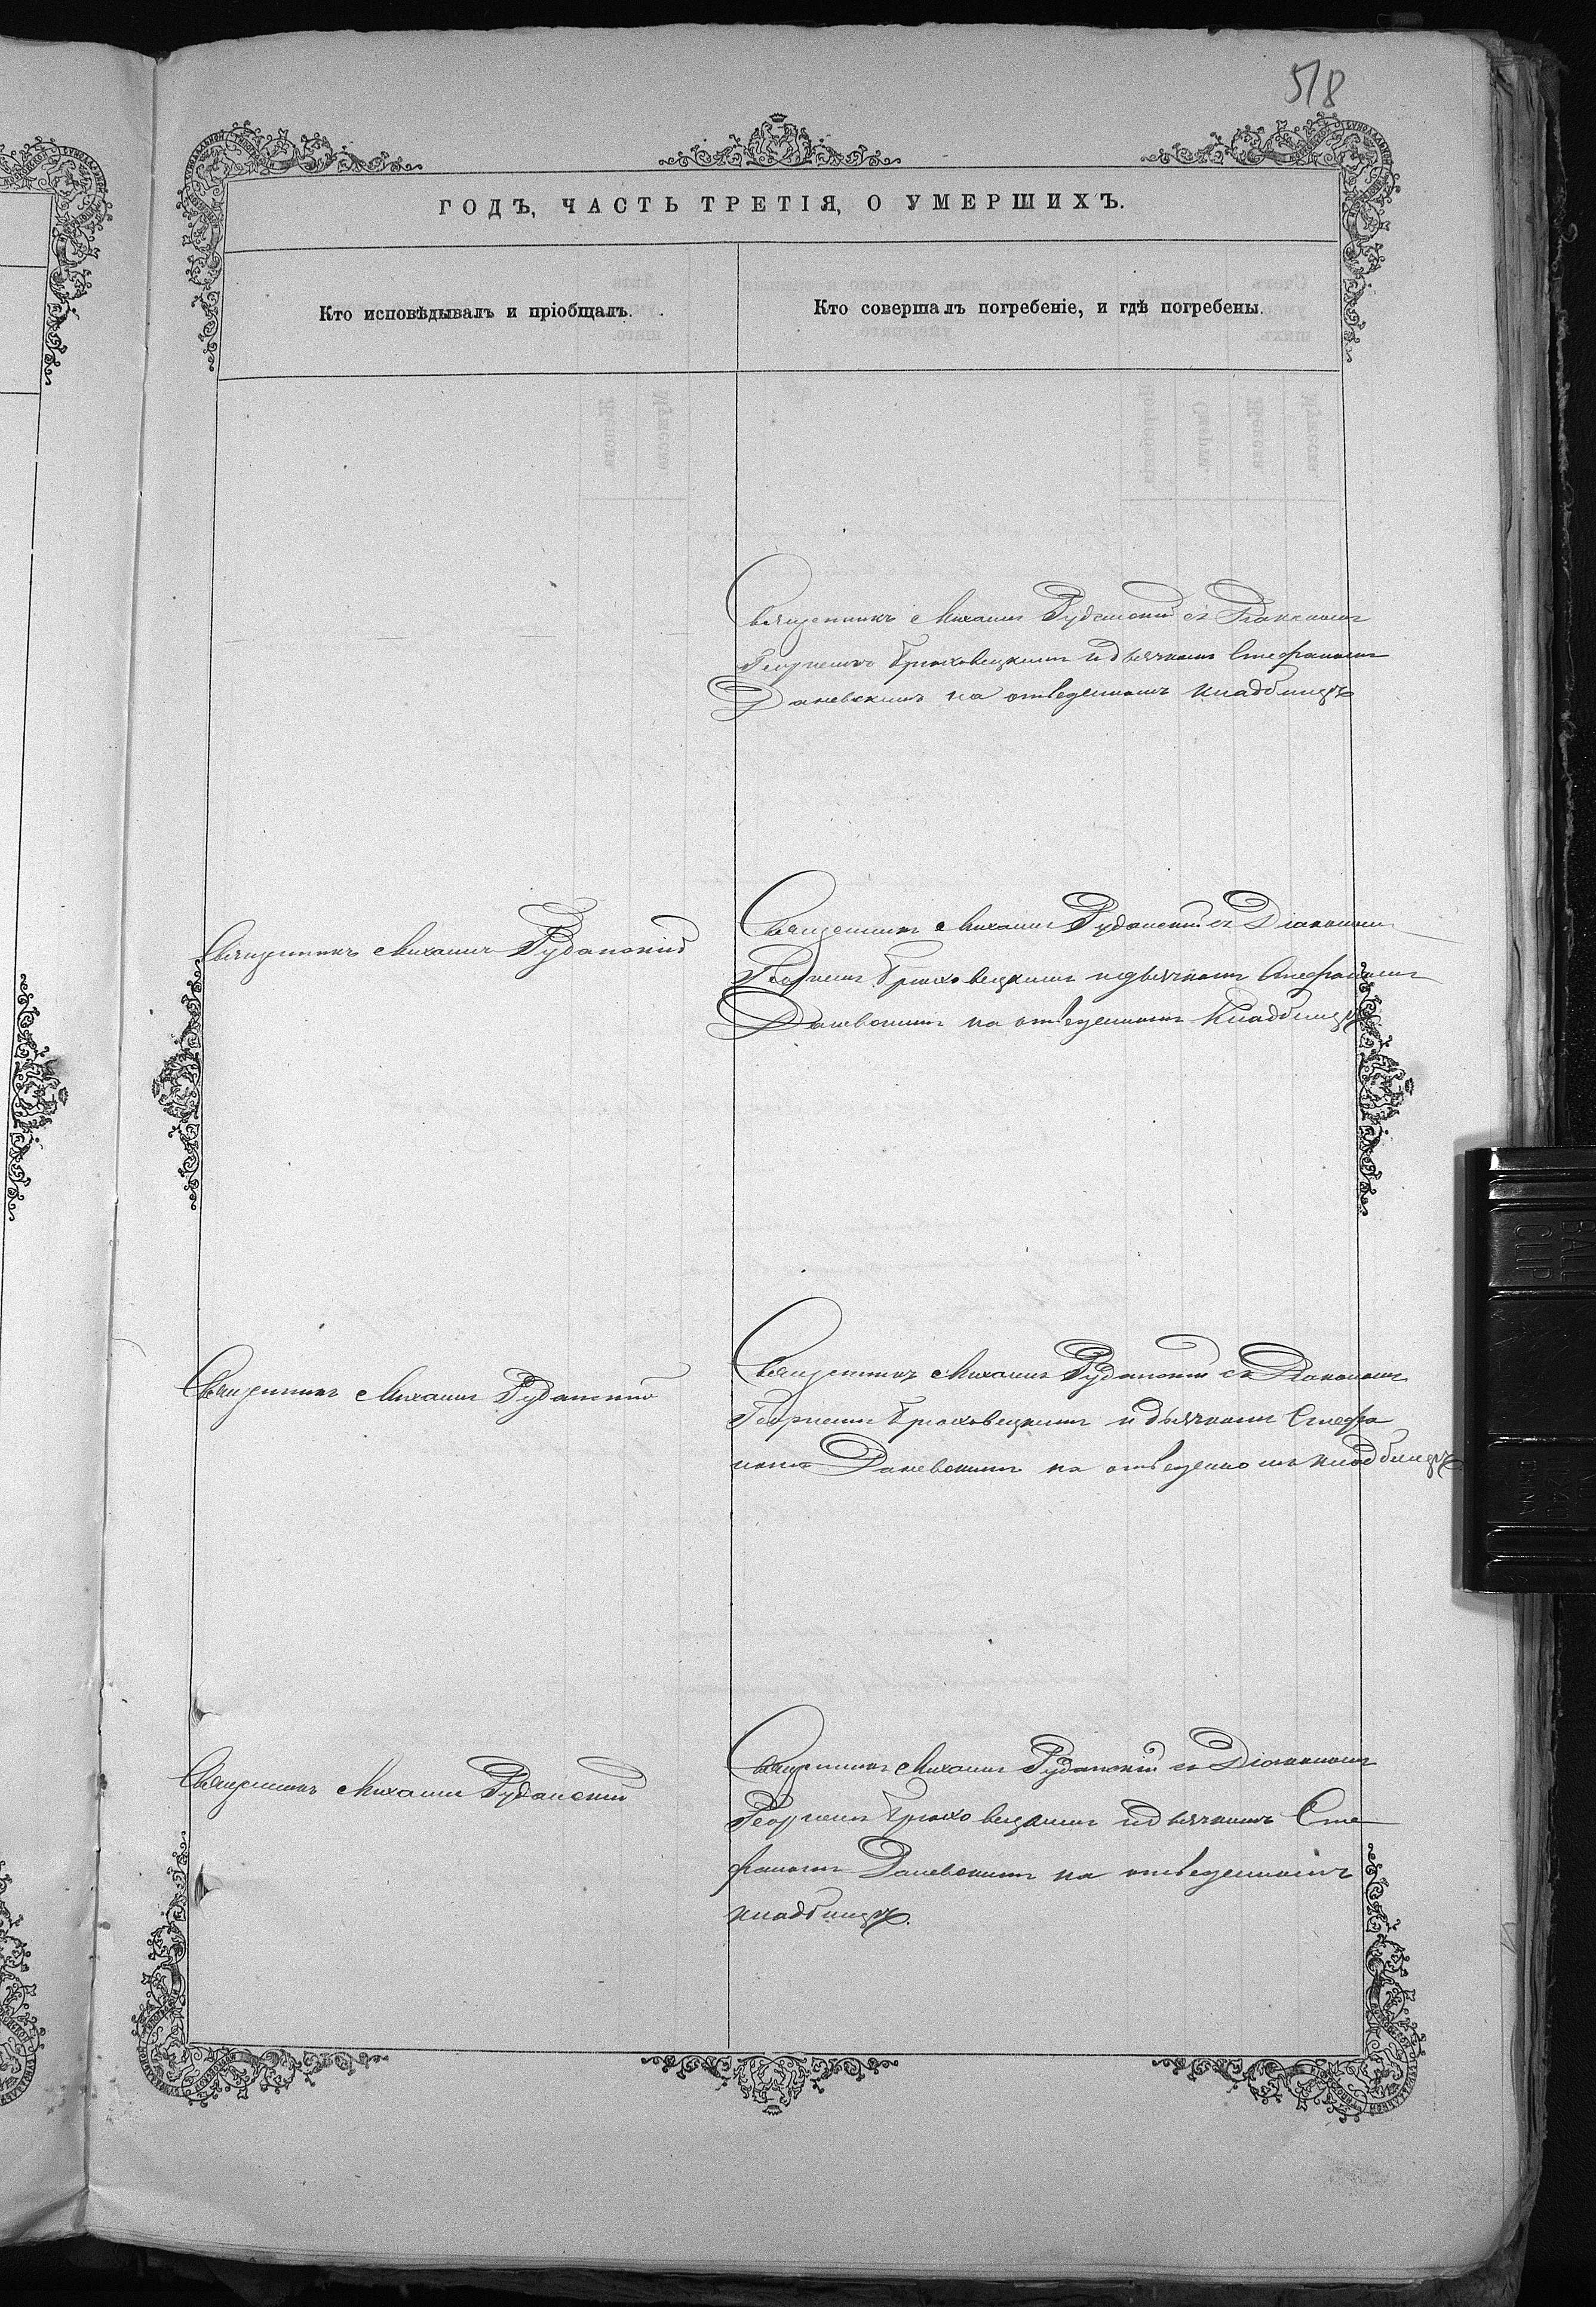 518
ГОДЪ, ЧАСТЬ ТРЕТІЯ, О УМЕРШИХЪ.
Кто исповѣдывалъ и пріобщалъ.
Кто совершалъ погребеніе, и гдѣ погребены.
Священникъ Михаилъ Руданскій съ Діакономъ
Георгіемъ Брюховецкимъ и дьячкомъ Стефаномъ
Даневскимъ на отведенномъ кладбищѣ
Священникъ Михаилъ Руданскій
Священникъ Михаилъ Руданскій съ Діакономъ
Георгіемъ Брюховецкимъ и дьячкомъ Стефаномъ
Даневскимъ на отведенномъ кладбищѣ
Священникъ Михаилъ Руданскій
Священникъ Михаилъ Руданскій съ Діакономъ
Георгіемъ Брюховецкимъ и дьячкомъ Стефа
номъ Даневскимъ на отведенномъ кладбищѣ.
Священникъ Михаилъ Руданскій
Священникъ Михаилъ Руданскій съ Діакономъ
Георгіемъ Брюховецкимъ и дьячкомъ Сте
фаномъ Даневскимъ на отведенномъ
кладбищѣ.